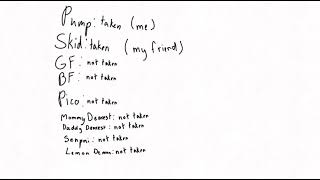 Pump: taken (me)
Skid: taken (my friend)
GF: not taken
BF: not taken
Pico: not taken
Mommy Dearest: not taken
Daddy Dearest: not taken
Senpai: not taken
Lemon Demon: not taken